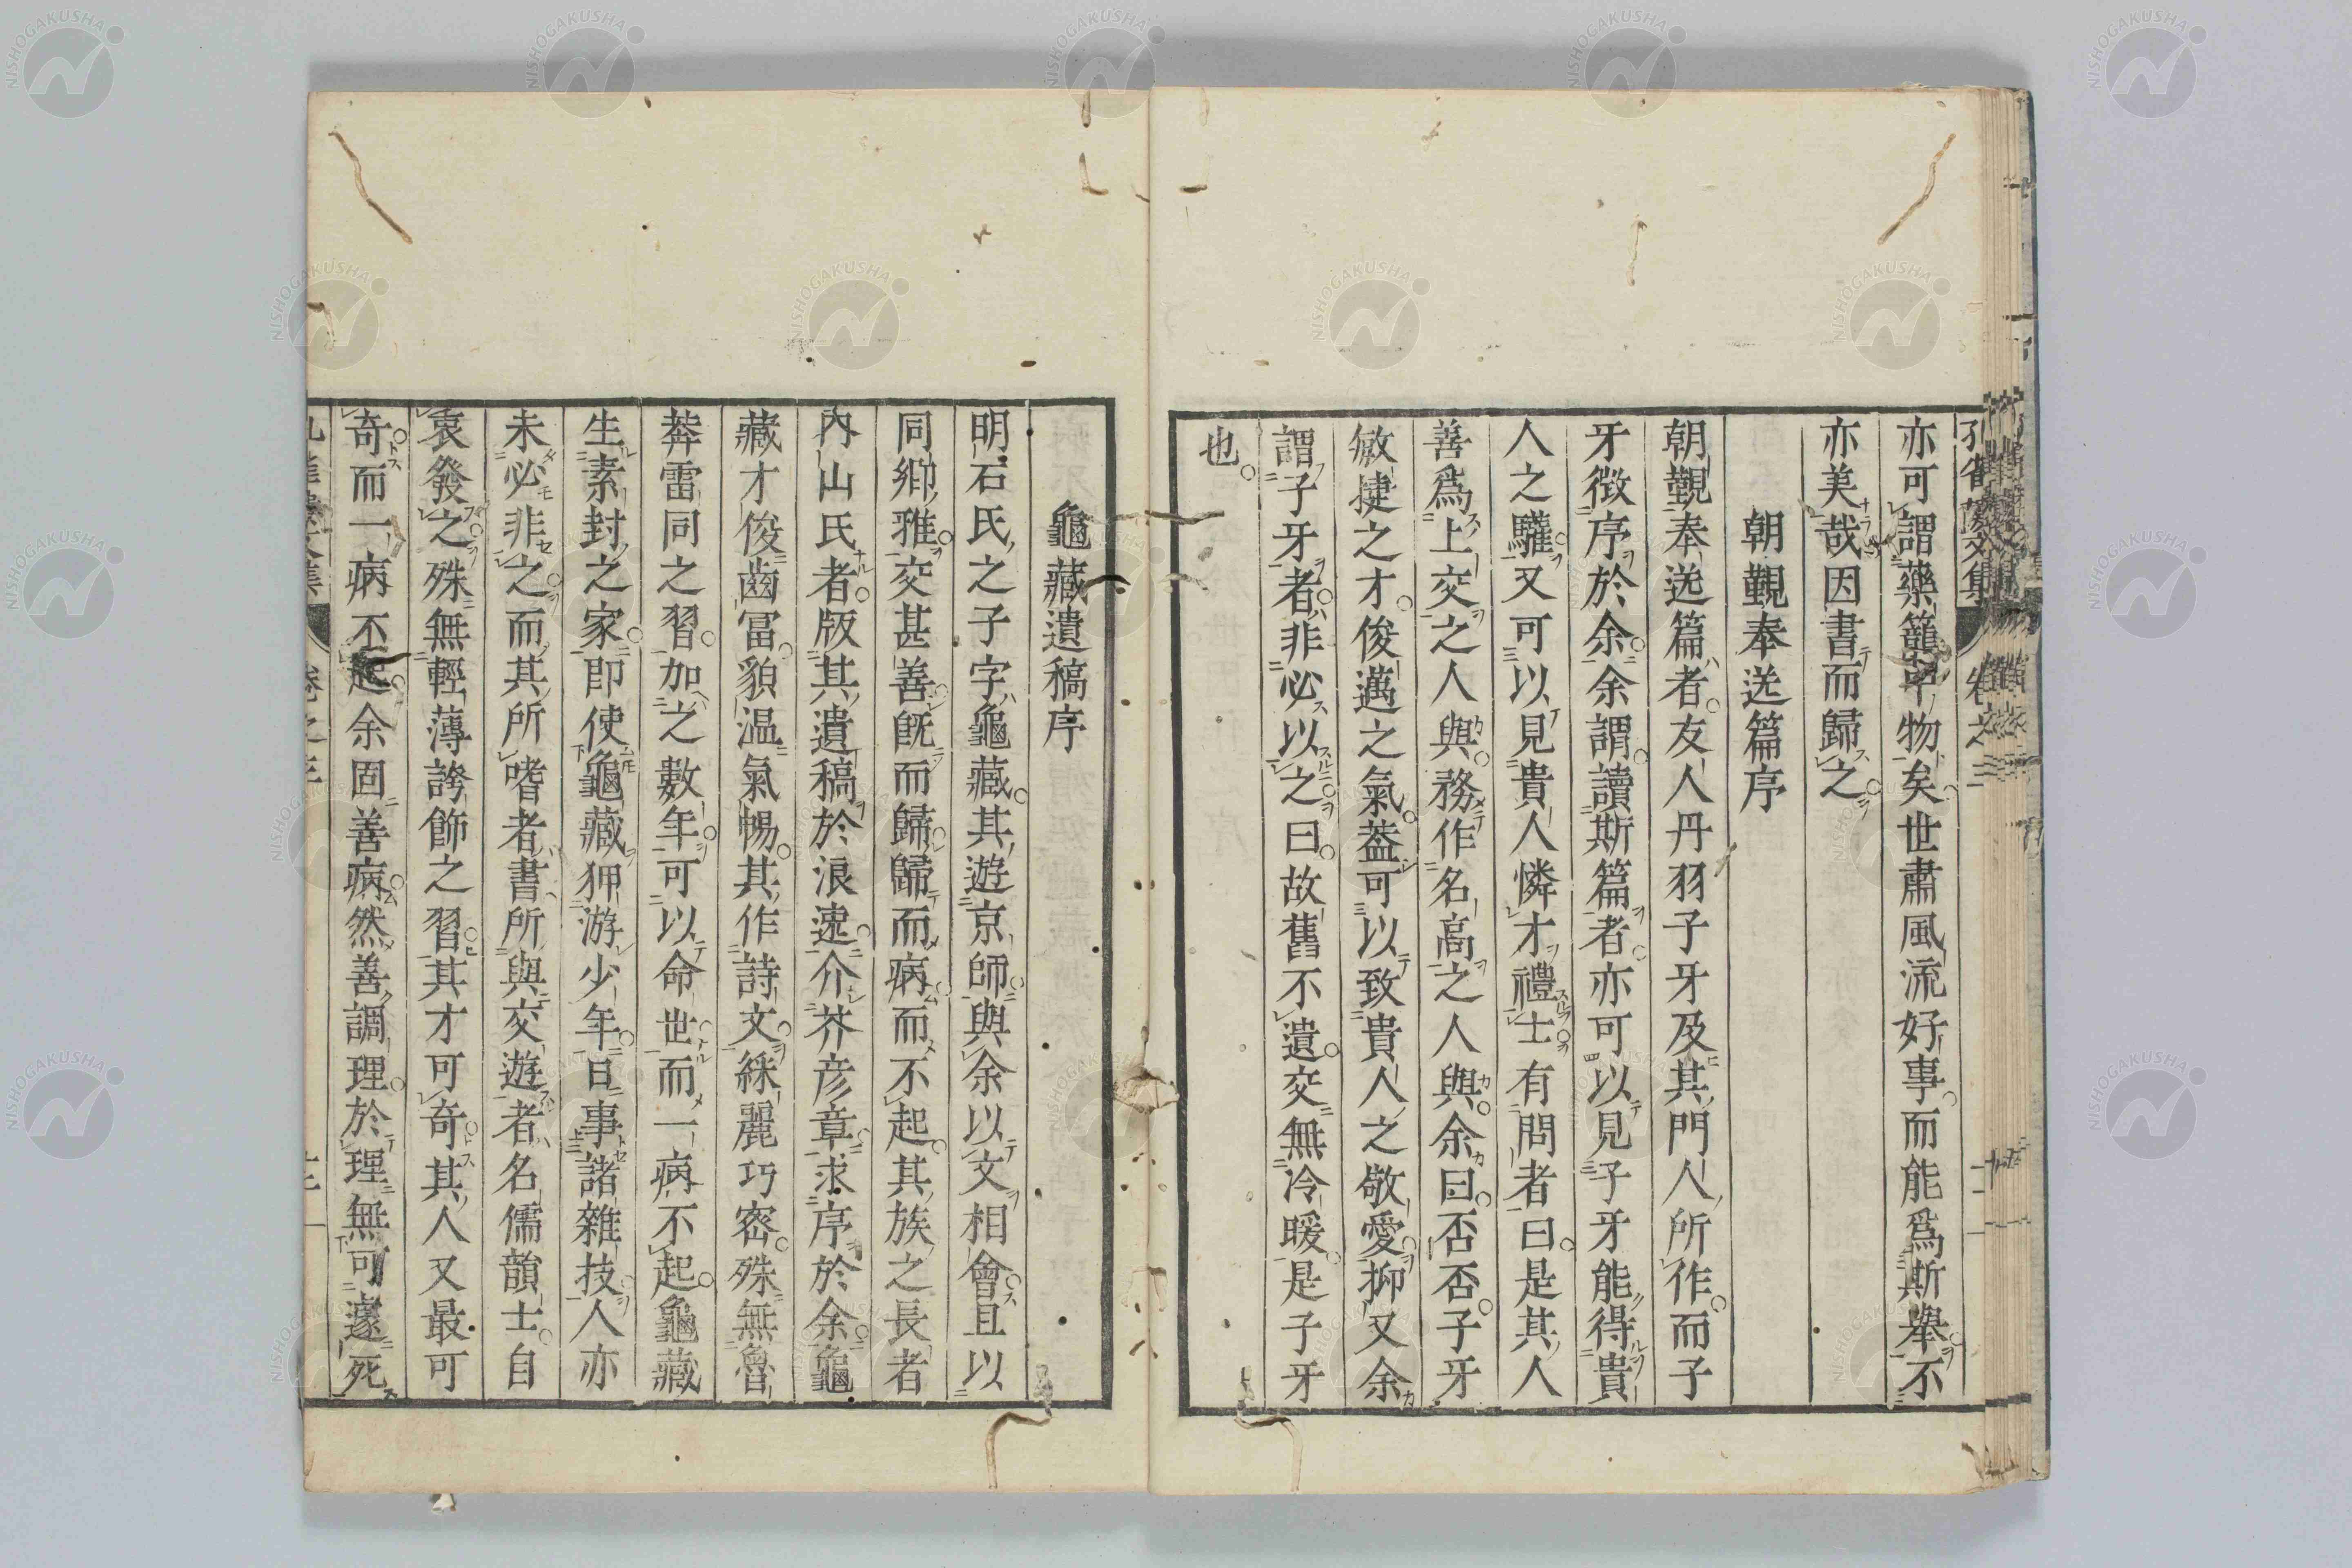 亦可謂藥籠中物矣世肅風流好事而能爲斯舉不
亦美哉因書而歸之
朝覲奉送篇序
朝覲奉送篇者友人丹羽子牙及其門人所作而子
牙徵序於余余謂讀斯篇者亦可以見子牙能得貴
人之驩又可以見貴人憐才禮士有問者曰是其人
善爲上交之人與務作名高之人與余曰否否子牙
敏捷之才俊邁之氣蓋可以致貴人之敬愛抑又余
謂子牙者非必以之曰故舊不遺交無冷暖是子牙
也
龜藏遺稿序
明石氏之子字龜藏其遊京師與余以文相會且以
同鄉雅交甚善既而歸歸而病而不起其族之長者
內山氏者版其遺稿於浪速介芥彦章求序於余龜
藏才俊齒冨貌温氣暢其作詩文綵麗巧密殊無魯
莽雷同之習加之數年可以命世而一病不起龜藏
生素封之家即使龜藏狎游少年日事諸雜技人亦
未必非之而其所嗜者書所與交遊者名儒韻士自
衷發之殊無輕薄誇飾之習其才可奇其人又最可
奇而一病不起余固善病然善調理於理無可遽死